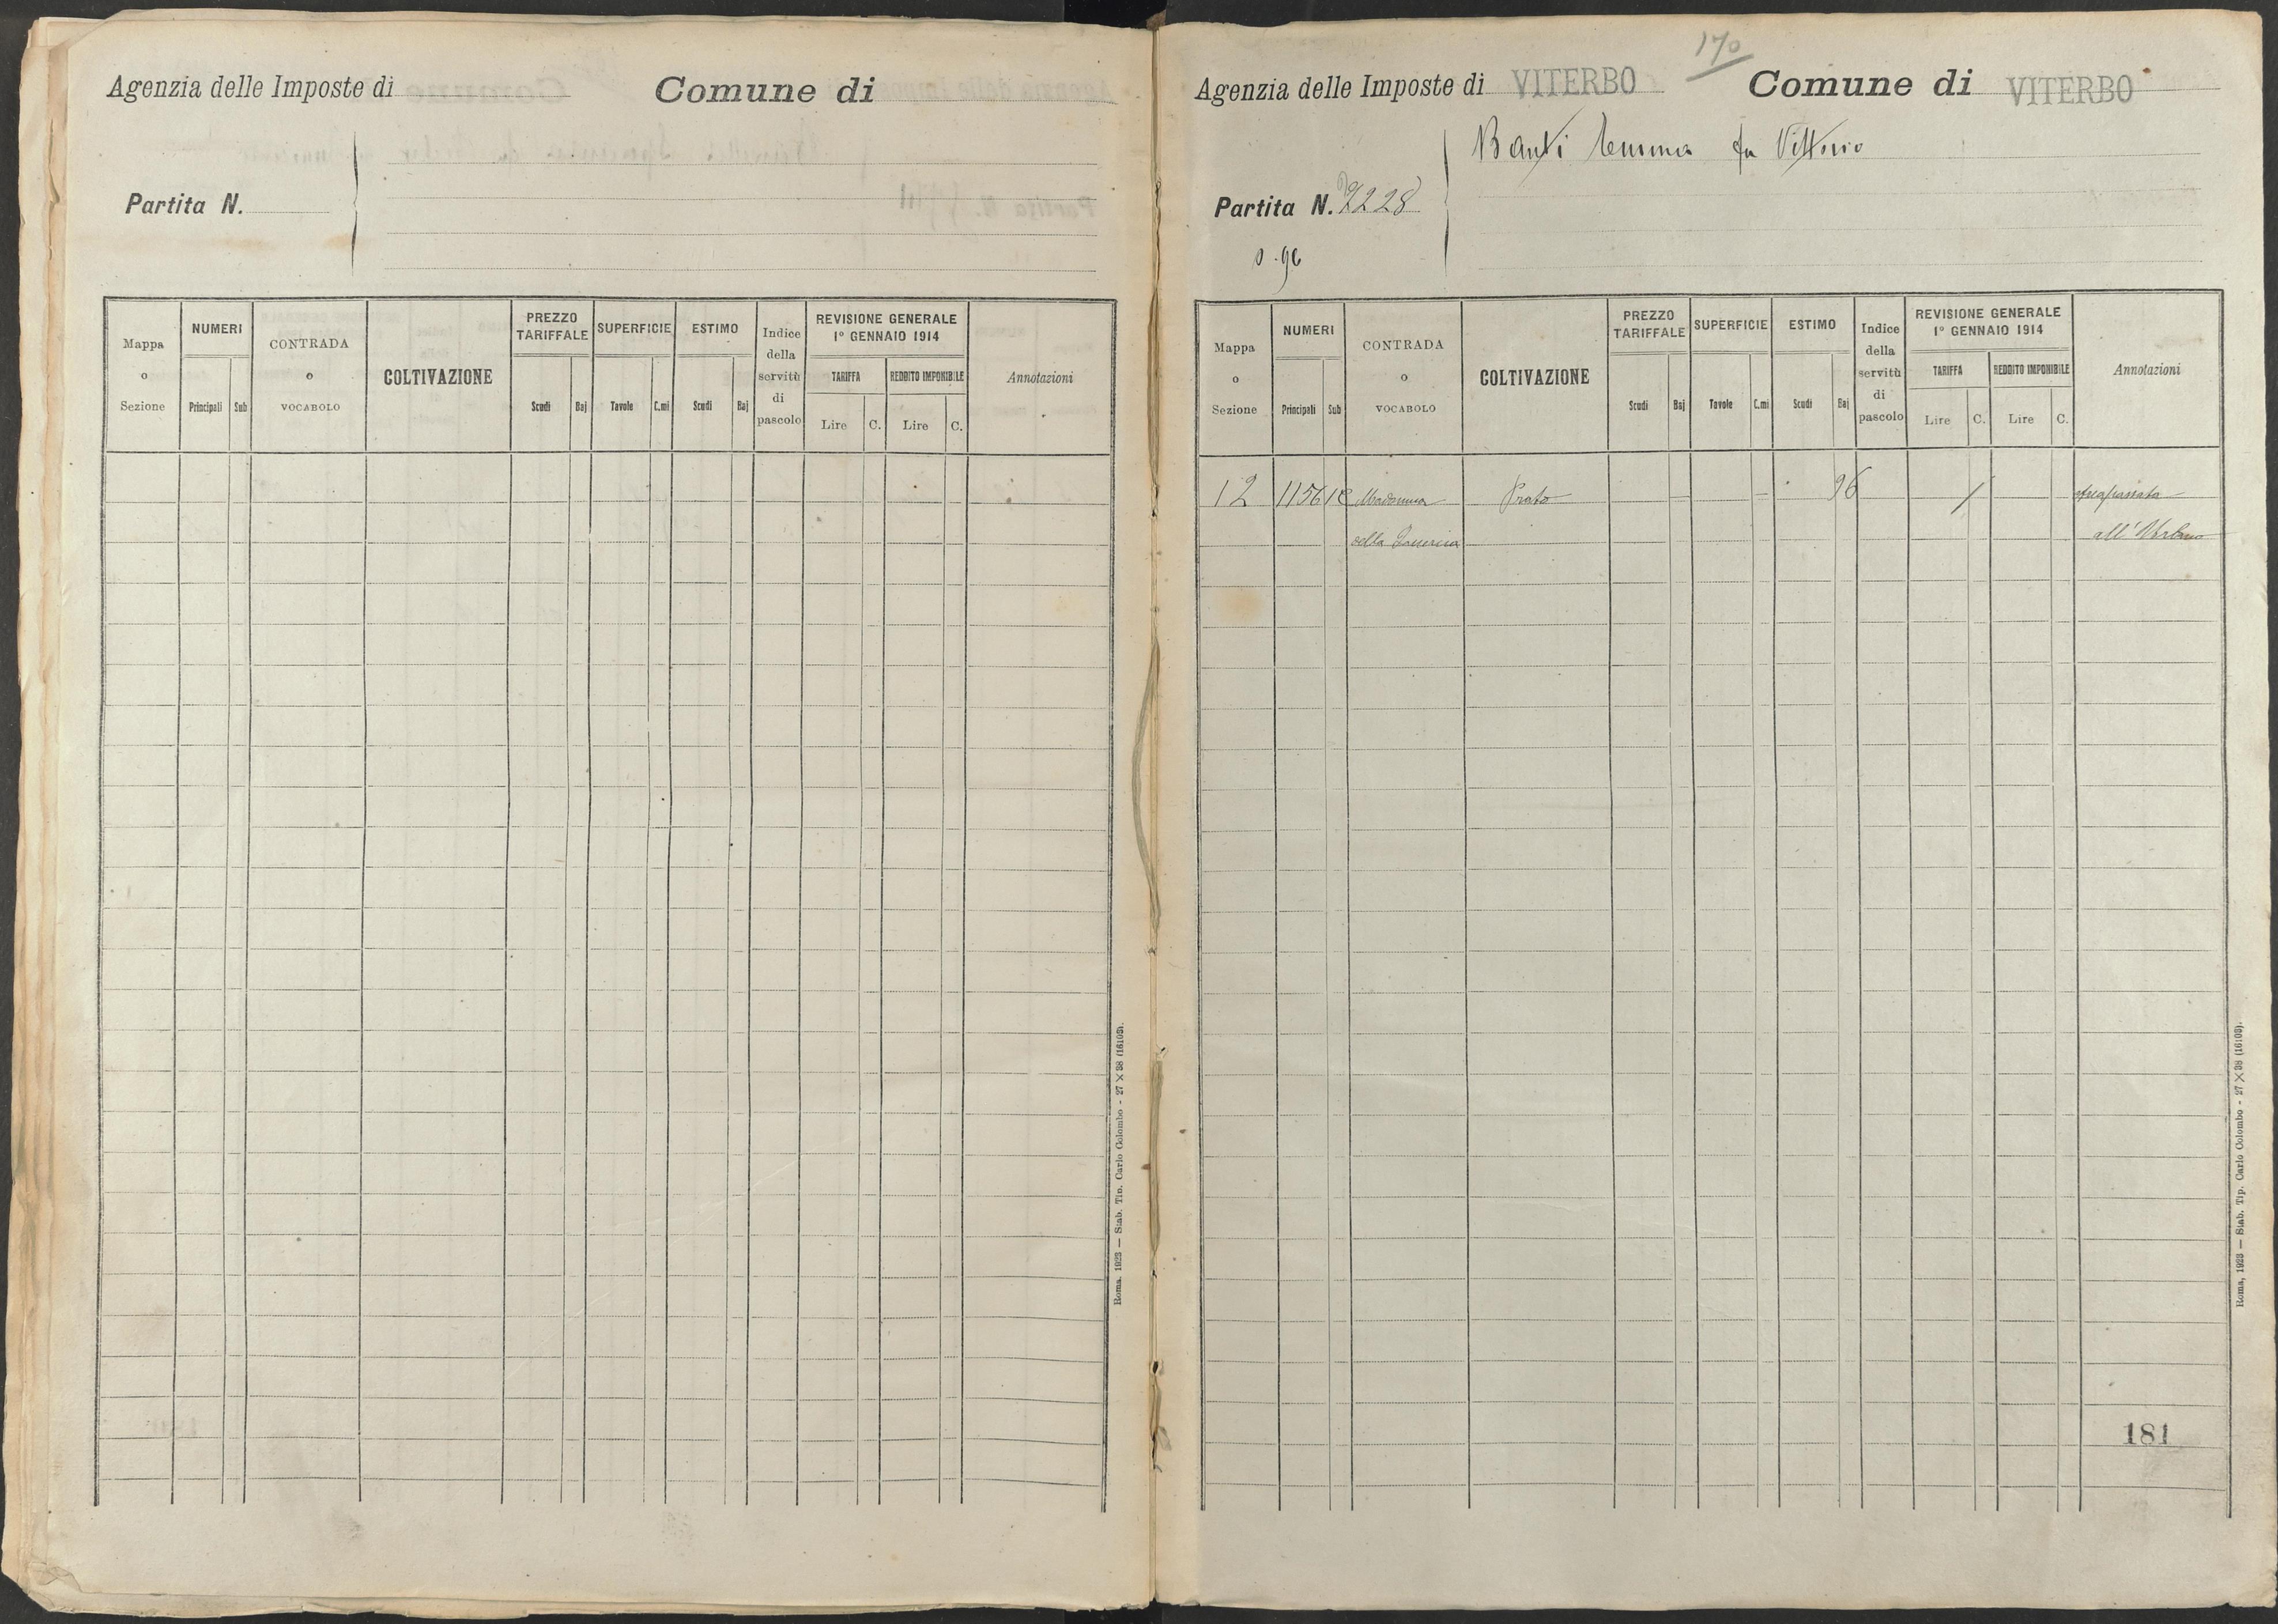 Agenzia delle Imposte di
Comune di
Partita N.
Mappa o Sezione
NUMERI
Principali
Sub
CONTRADA o VOCABOLO
COLTIVAZIONE
PREZZO TARIFFALE
Scudi
Baj
SUPERFICIE
Tavole
C.mi
ESTIMO
Scudi
Baj
Indice della servitù di pascolo
REVISIONE GENERALE
1° GENNAIO 1914
TARIFFA
Lire
C.
REDDITO IMPONIBILE
Lire
C.
Annotazioni
Roma, 1923 — Stab. Tip. Carlo Colombo - 27 × 38 (16103).
170
Agenzia delle Imposte di VITERBO
Comune di VITERBO
Banti Gemma fu Vittorio
Partita N. 7228
0.96
Mappa o Sezione
NUMERI
Principali
Sub
CONTRADA o VOCABOLO
COLTIVAZIONE
PREZZO TARIFFALE
Scudi
Baj
SUPERFICIE
Tavole
C.mi
ESTIMO
Scudi
Baj
Indice della servitù di pascolo
REVISIONE GENERALE
1° GENNAIO 1914
TARIFFA
Lire
C.
REDDITO IMPONIBILE
Lire
C.
Annotazioni
12 1156 Madonna Prato — — 96 / trapassata
della Quercia all'Urbano
181
Roma, 1923 — Stab. Tip. Carlo Colombo - 27 × 38 (16103).